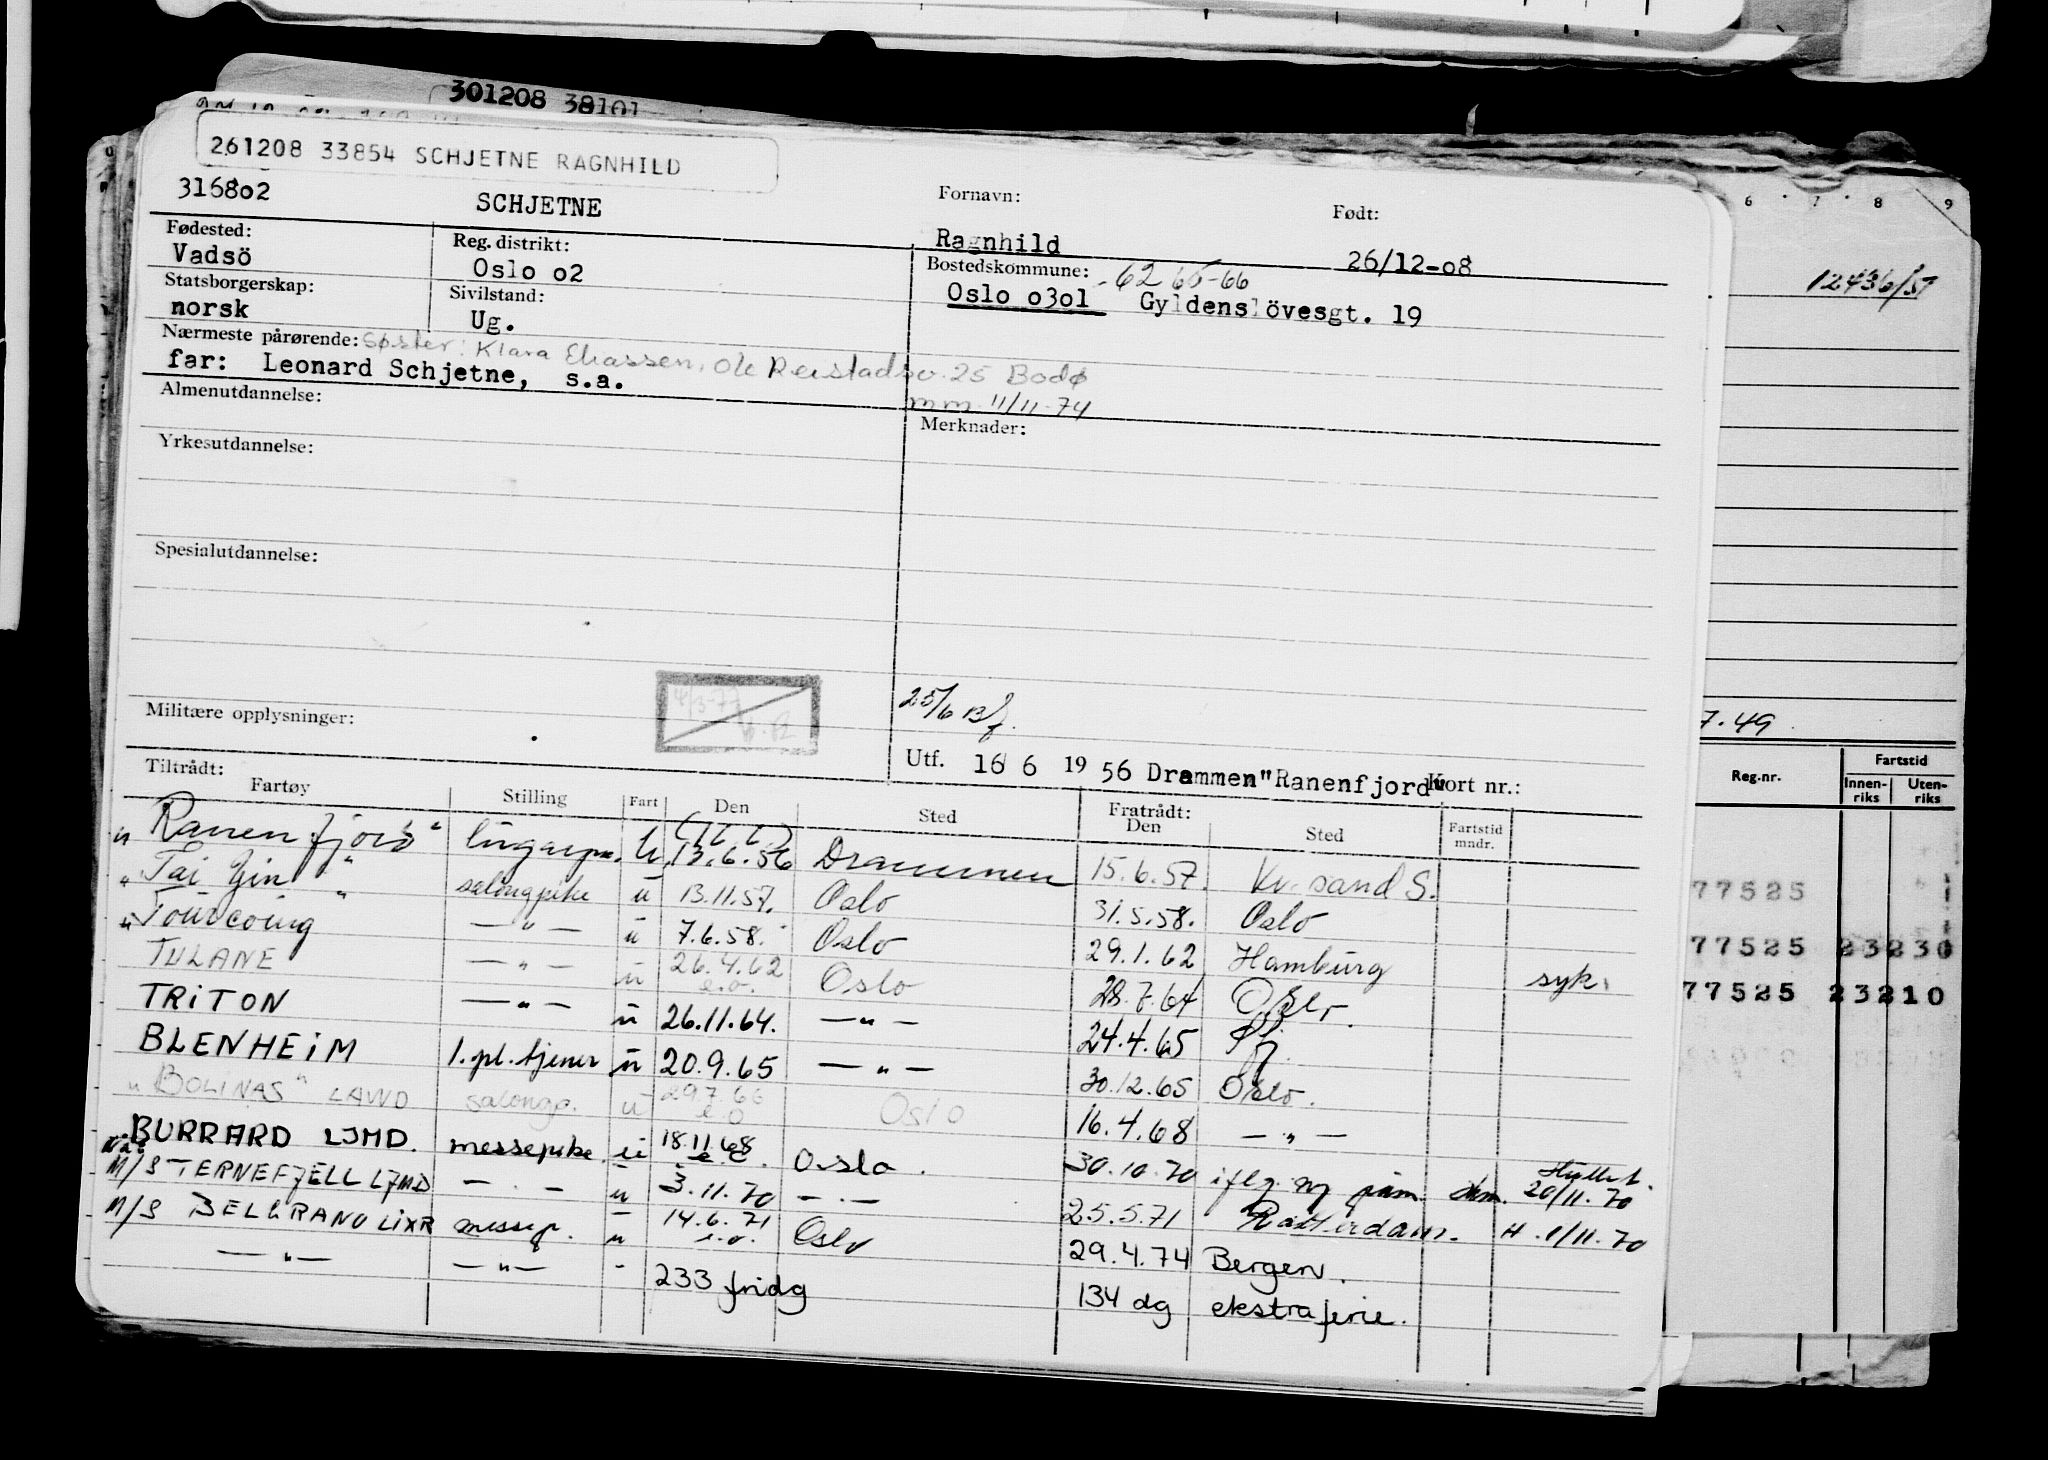 301208 38101
261208 33854 SCHJETNE RAGNHILD
316802 SCHJETNE
Fornavn: Ragnhild
Født: 26/12-08
Fødested: Vadsö
Reg. distrikt: Oslo o2
Bostedskommune: 62 65-66
Oslo o3o1 Gyldenslövesgt. 19
Statsborgerskap: norsk
Sivilstand: Ug.
Nærmeste pårørende: Søster: Klara Eliassen, Ole Reistadsv. 25 Bodø
far: Leonard Schjetne, s.a.
mm. 11/11-74
Almenutdannelse:
Merknader:
Yrkesutdannelse:
Spesialutdannelse:
4/3-77
25/6
Militære opplysninger:
Utf. 16 6 19 56 Drammen "Ranenfjord" Kort nr.:
Tiltrådt: Fartøy Stilling Fart Den Sted Fratrådt: Den Sted Fartstid mndr.
"Ranenfjord" lugarpike u (16.6) 13.6.56 Drammen 15.6.57. Kr.sand S.
"Tai Yin" salongpike u 13.11.57. Oslo 31.5.58. Oslo
"Tourcoing" — " — u 7.6.58. Oslo 29.1.62 Hamburg syk.
TULANE — " — u 26.4.62 e.o. Oslo 28.7.64 Oslo.
TRITON — " — u 26.11.64. — " — 24.4.65
BLENHEIM 1. pl. tjener u 20.9.65 — " — 30.12.65 Oslo.
"BOLINAS" LAWD salongp. u 29.7.66 e.o Oslo 16.4.68 — " —
BURRARD LJMD. messepike u 18.11.68 Oslo. 30.10.70 iflg. ny 20/11.70
M/S TERNEFJELL LJMD — " — u 3.11.70 — " — 25.5.71 Rotterdam. H. 1/11.70
M/S BELGRANO LIXR messep. u 14.6.71 e.o. Oslo 29.4.74 Bergen.
— " — — " — - 233 fridg 134 dg ekstraferie.
6 7 8 9
12436/51
7.49
Reg.nr. Fartstid
Innenriks Utenriks
77525
77525 23230
77525 23210